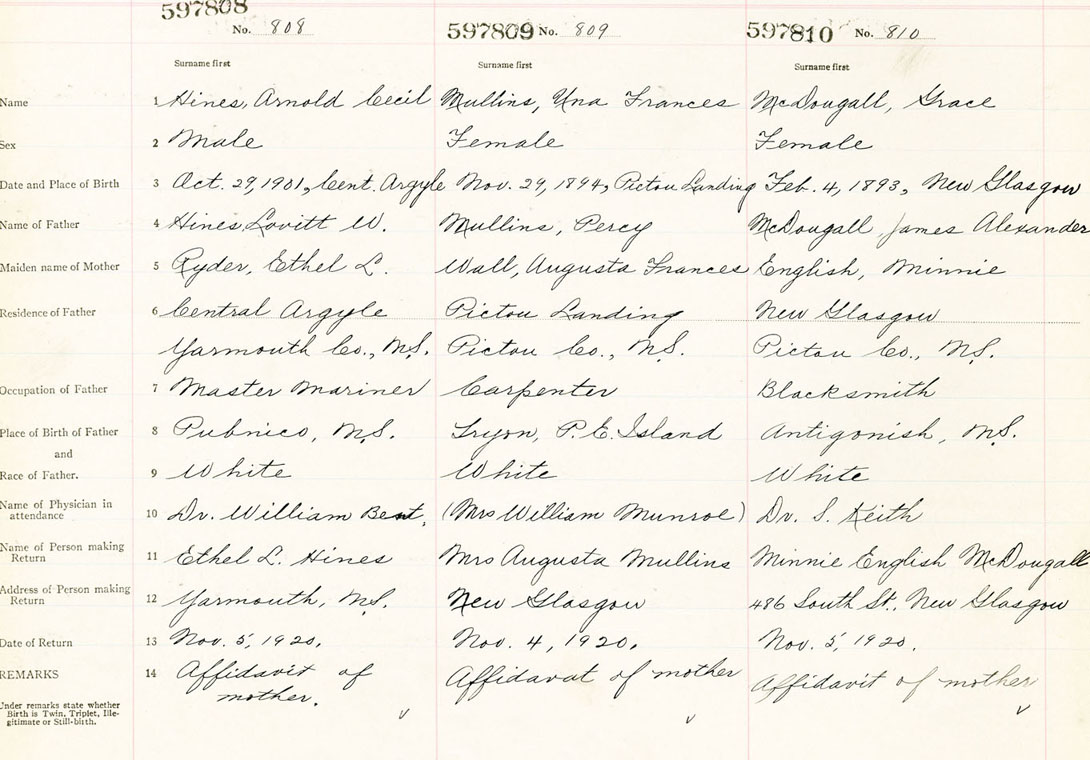 597808 597809 597810
No. 808 No. 809 No. 810
Surname first Surname first Surname first
Name 1 Hines, Arnold Cecil Mullins, Una Frances McDougall, Grace
Sex 2 Male Female Female
Date and Place of Birth 3 Oct. 29, 1901, Cent. Argyle Nov. 29, 1894, Pictou Landing Feb. 4, 1893, New Glasgow
Name of Father 4 Hines, Lovitt W. Mullins, Percy McDougall, James Alexander
Maiden name of Mother 5 Ryder, Ethel L. Wall, Augusta Frances English, Minnie
Residence of Father 6 Central Argyle Pictou Landing New Glasgow
Yarmouth Co., N.S. Pictou Co., N.S. Pictou Co., N.S.
Occupation of Father 7 Master Mariner Carpenter Blacksmith
Place of Birth of Father 8 Pubnico, N.S. Tryon, P.E. Island Antigonish, N.S.
and
Race of Father. 9 White White White
Name of Physician in
attendance 10 Dr. William Bent, (Mrs William Munroe) Dr. S. Keith
Name of Person making
Return 11 Ethel L. Hines Mrs Augusta Mullins Minnie English McDougall
Address of Person making
Return 12 Yarmouth, N.S. New Glasgow 486 South St. New Glasgow
Date of Return 13 Nov. 5, 1920. Nov. 4, 1920. Nov. 5, 1920.
REMARKS 14 Affidavit of Affidavat of mother Affidavit of mother
mother.
Under remarks state whether
Birth is Twin, Triplet, Ille-
gitimate or Still-birth.